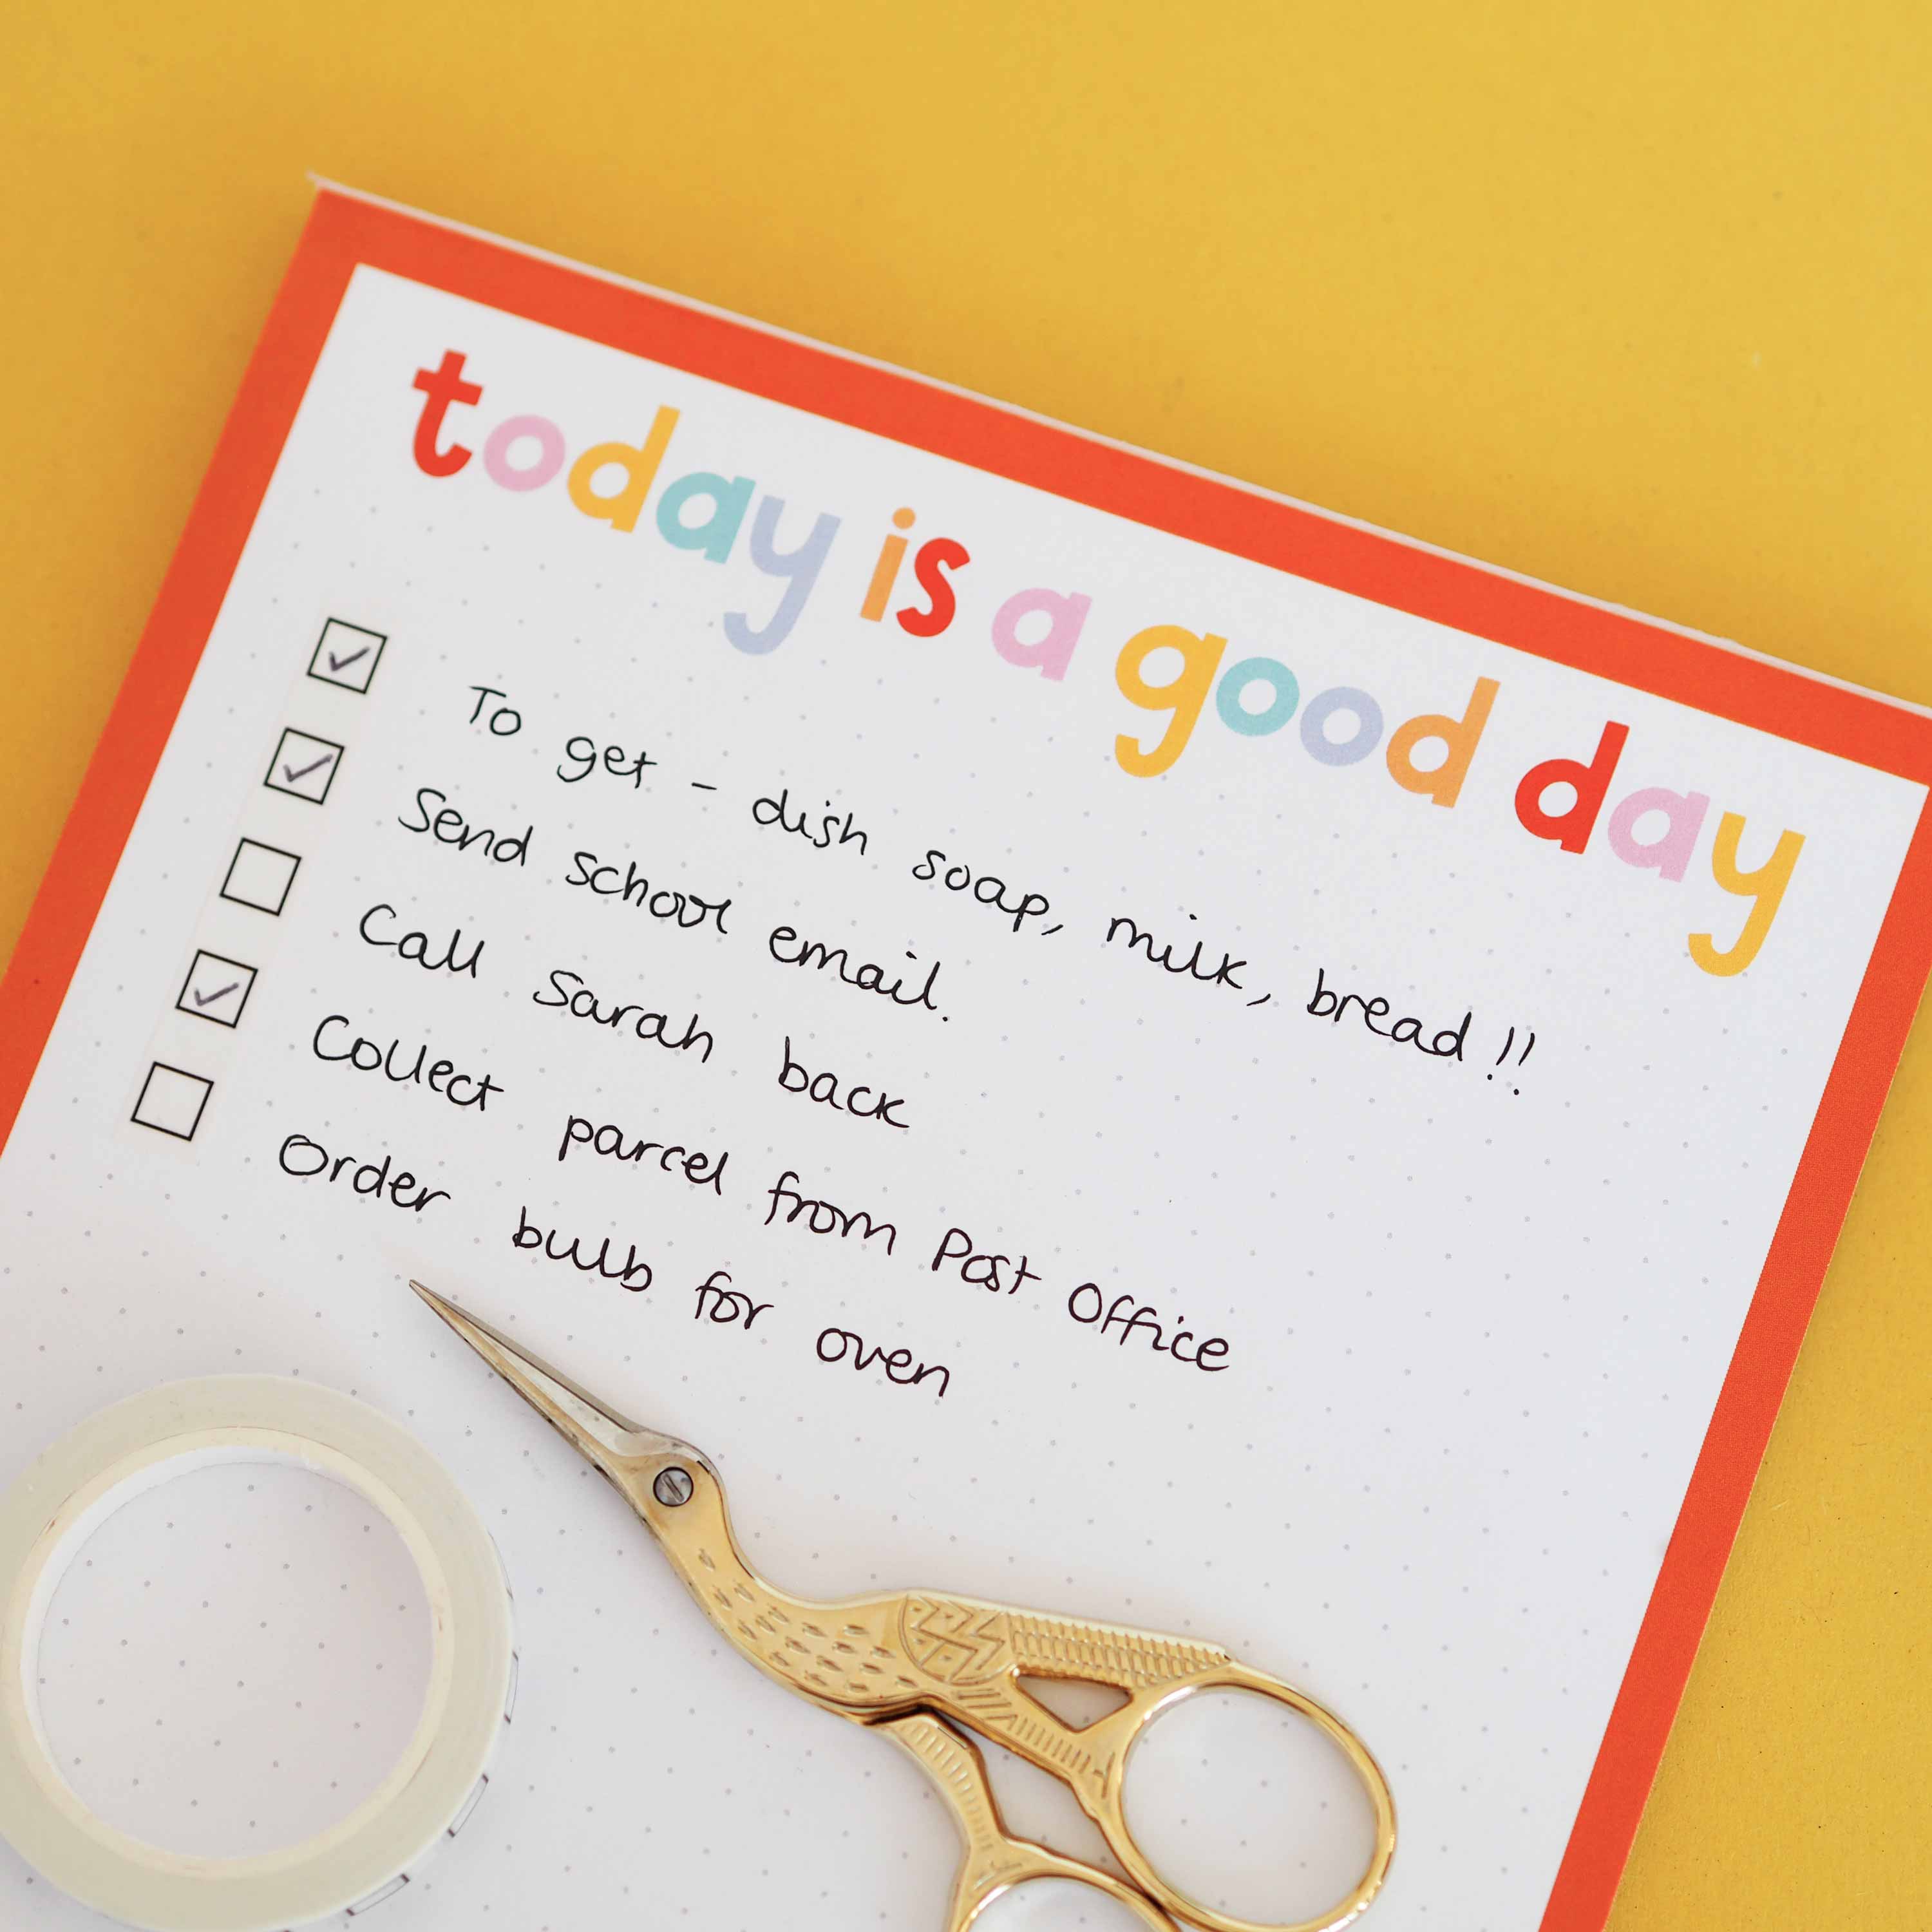 today is a good day
To get - dish soap, milk, bread!!
Send school email.
Call Sarah back
Collect parcel from Post Office
Order bulb for oven